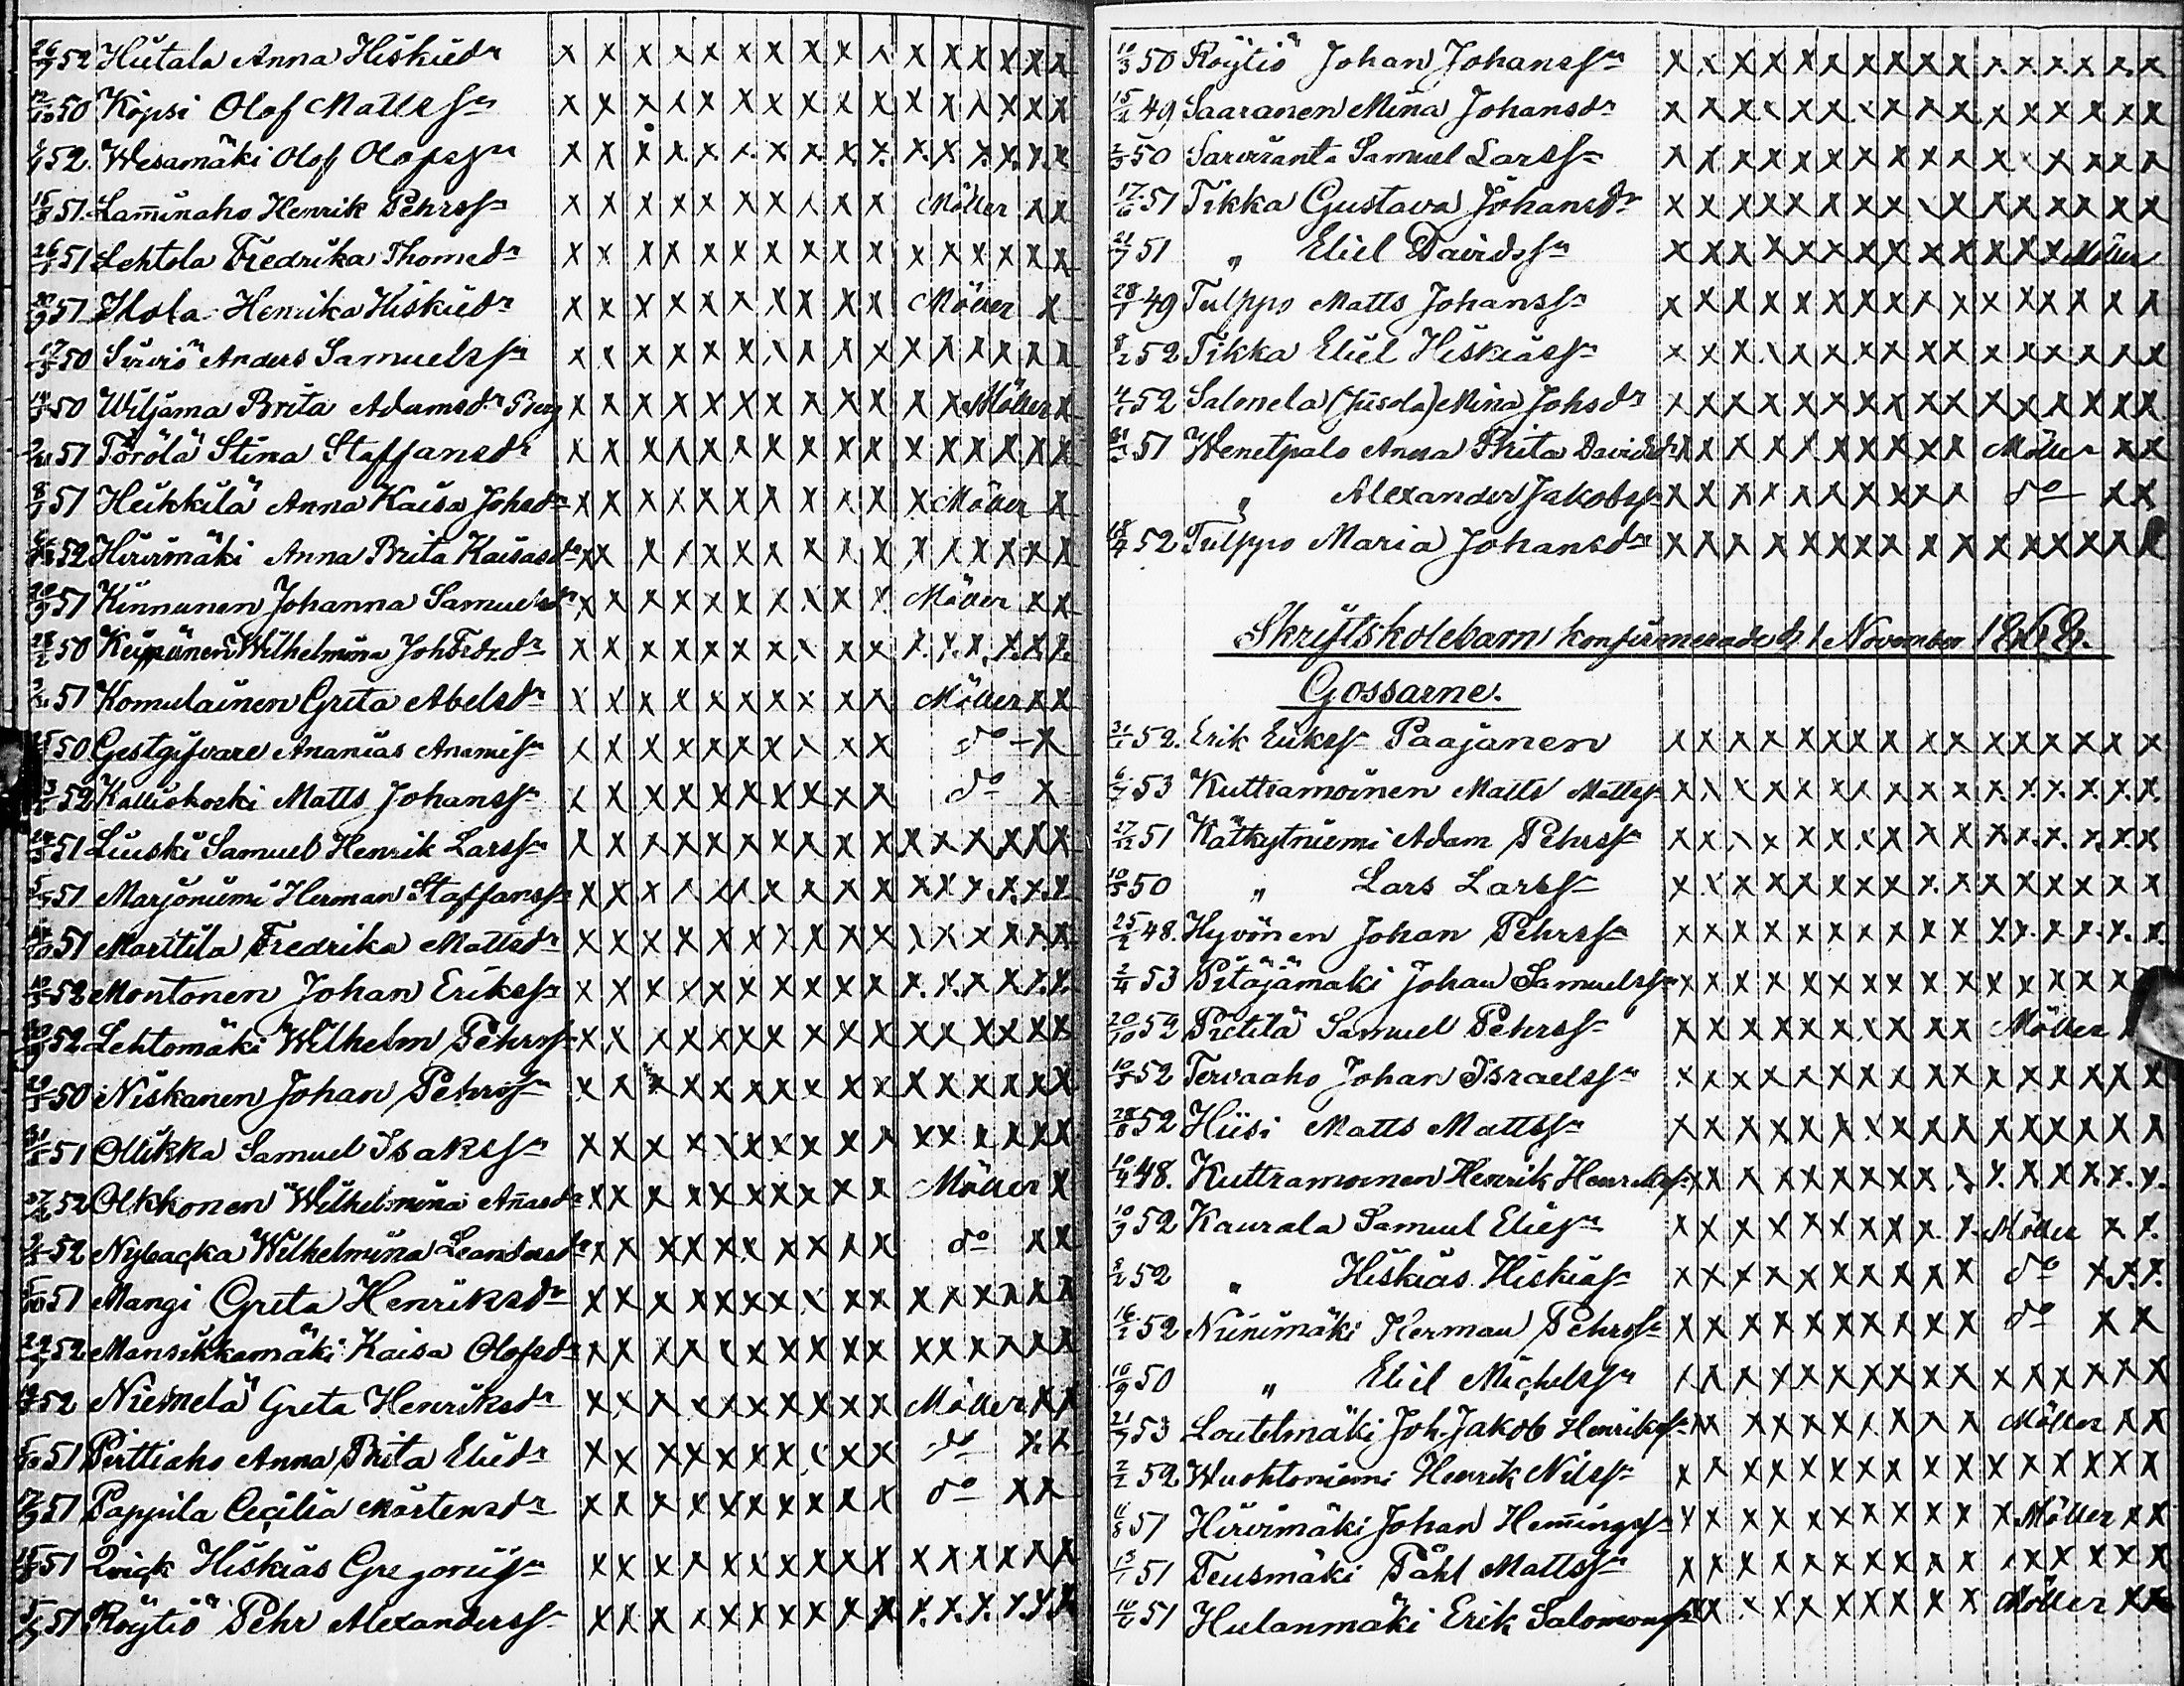 52 Hiitala Anna Hiskiedr
50 Köpsi Olof Mattssn
52. Wesamäki Olof Olofssn
51. Lam̄inaho Henrik Pehrssn Möller
26/1 51 Lehtola Fredrika Thomedr
51 Ilola Henrika Hiskiedr Möller
50 Sirviö Anders Samuelssn
50 Wiljama Brita Adamsdr Berg Möller
51 Törölä Stina Staffansdr
51 Heikkilä Anna Kaisa Johsdr Möller
52 Hirvimäki Anna Brita Kaisasdr
51 Kinnunen Johanna Samuelsdr Möller
50 Wilhelmina Joh Fdrdr
51 Komulainen Greta Abelsdr Möller
50 Gestgifvare Ananias Ananiesn do
52 Kalliokoski Matts Johanssn do
51 Liuski Samuel Henrik Larssn
51 Marjoniemi Herman Staffanssn
51 Marttila Fredrika Mattsdr
52 Montonen Johan Erikssn
52 Lehtomäki Wilhelm Pehrssn
50 Niskanen Johan Pehrssn
51 Ollikka Samuel Isakssn
52 Olkkonen Wilhelmina An̄asdr Möller
52 Nybacka Wilhelmina Leandersdr do
51 Mangi Greta Henriksdr
52 Mansikkamäki Kaisa Olofsdr
52 Niemelä Greta Henriksdr Möller
51 Pirttiaho Anna Brita Eliedr do
51 Pappila Cecilia Mårtensdr do
51 Qvick Hiskias Gregoriissn
51 Röytiö Pehr Alexanderssn
10/3 50 Röytiö Johan Johanssn
49 Saaranen Mina Johansdr
50 Sarviranta Samuel Larssn
17/6 51 Tikka Gustava Johansdr
21/7 51 " Eliel Davidssn Möller
28/1 49 Tulppo Matts Johanssn
8/2 52 Tikka Eliel Hiskiassn
52 Salonela (Jusola) Mina Johsdr
51 Wenetpalo Anna Brita Davidsdr Möller
" Alexander Jakobssn do
18/4 52 Tulppo Maria Johansdr
Skriftskolebarn konfirmerade d. 1 November 1868.
Gossarne.
31/1 52. Erik Erikssn Paajanen
6/7 53 Kuttramoinen Matts Mattssn
27/12 51 Kätkytniemi Adam Pehrssn
10/5 50 " Lars Larssn
25/2 48. Hyvönen Johan Pehrssn
2/4 53 Pitäjämäki Johan Samuelssn
20/10 52 Pietilä Samuel Pehrssn Möller
10/3 52 Tervaaho Johan Israelssn
28/8 52 Hiisi Matts Mattssn
10/4 48. Kuttramoinen Henrik Henrikssn
10/7 52 Kaurala Samuel Eliessn Möller
2/2 52 " Hiskias Hiskiassn do
16/2 52 Niinimäki Herman Pehrssn do
10/9 50 " Eliel Michelssn
21/7 53 Loutelmäki Joh. Jakob Henrikssn Möller
2/2 52 Wuohtoniemi Henrik Nilssn
11/8 51 Hirvimäki Johan Hem̄ingssn Möller
13/1 51 Teusmäki Påhl Mattssn
10/6 51 Hulanmäki Erik Salomonssn Möller